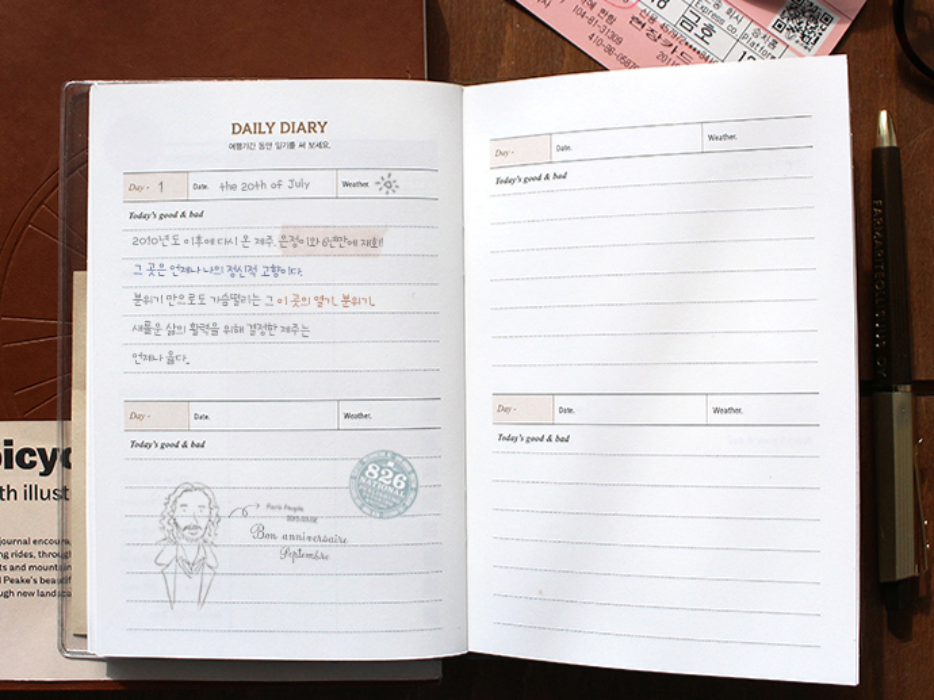 DAILY DIARY
여행기간 동안 일기를 써 보세요.
Day - 1 Date. the 20th of July Weather.
Today's good & bad
2010년도 이후에 다시 온 제주. 은정이와 6년만에 재회!
그 곳은 언제나 나의 정신적 고향이다.
분위기 만으로도 가슴떨리는 그 이 곳의 열기. 분위기.
새로운 삶의 활력을 위해 결정한 제주는
언제나 옳다.
Day - Date. Weather.
Today's good & bad
826
NATIONAL
Paris People
Bon anniversaire
Septembre
Day - Date. Weather.
Today's good & bad
Day - Date. Weather.
Today's good & bad
icyc
th illust
journal encoura
ng rides, throug
ts and mountain
Peake's beautif
ugh new landsca
104-81-31309
410-86-0587
현장카드
금호
Express co
Platform